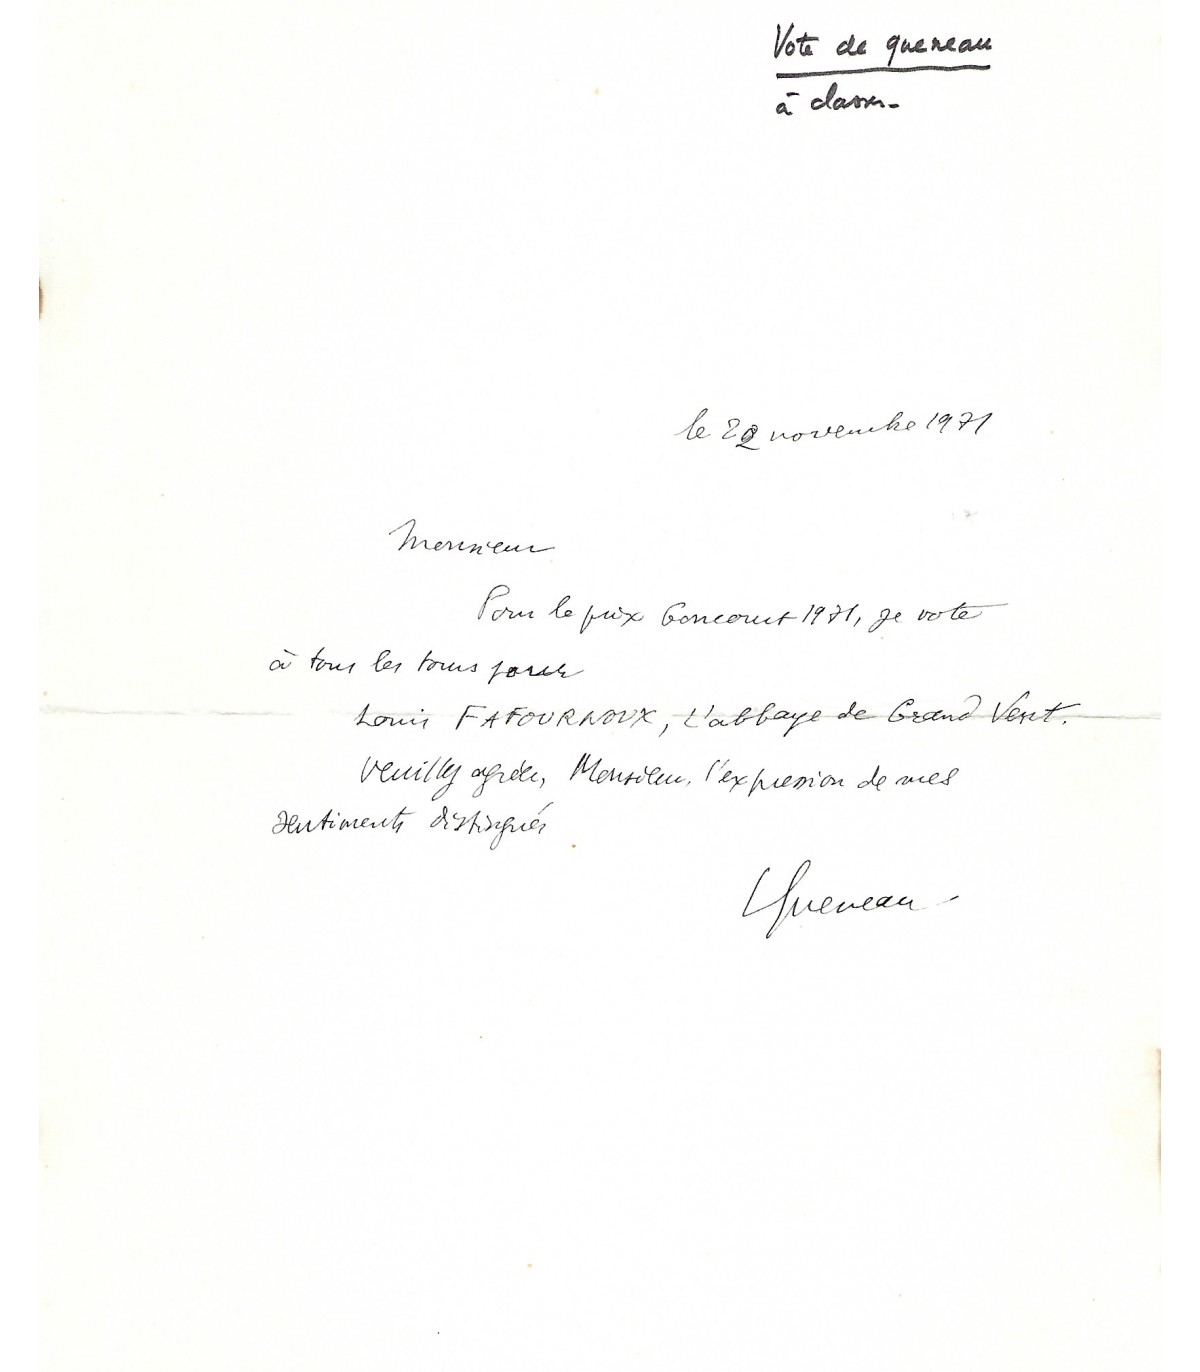 Vote de Queneau
à classer.
le 22 novembre 1971
Monsieur
Pour le prix Goncourt 1971, je vote
à tous les tours pour
Louis FAFOURNOUX, L'abbaye de Grand Vent.
Veuillez agréer, Monsieur, l'expression de mes
sentiments distingués
Queneau